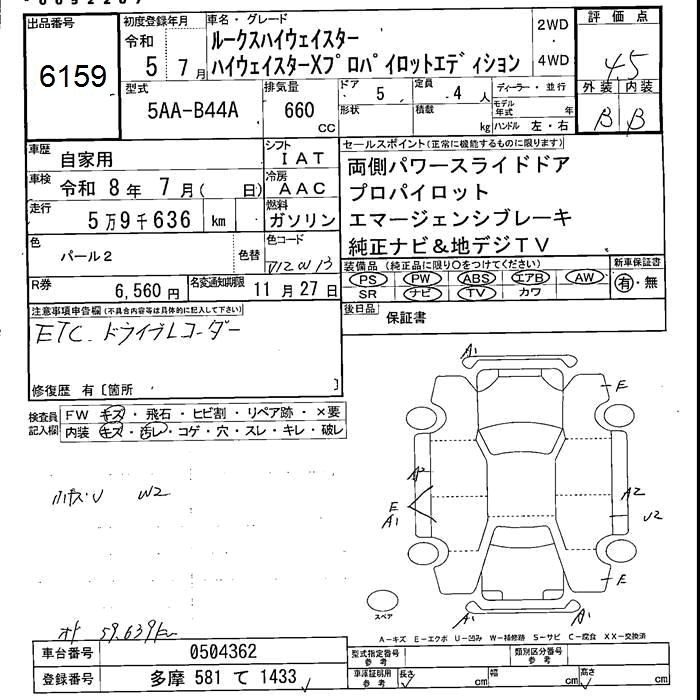 出品番号
6159
初度登録年月
令和
5 7月
車名・グレード
ルークスハイウェイスター
ハイウェイスターXプロパイロットエディション
2WD
・
4WD
評価点
4.5
外装 内装
B B
型式
5AA-B44A
排気量
660
cc
ドア 5
形状
定員 4 人
積載 kg
ディーラー・並行
モデル年式 年
ハンドル 左・右
車歴
自家用
シフト
IAT
車検
令和 8年 7月( 日)
冷房
AAC
走行
5万9千636 km
燃料
ガソリン
色
パール2
色替
色コード
R券
6,560円
名変通知期限
11月27日
セールスポイント(正常に機能するものに限ります)
両側パワースライドドア
プロパイロット
エマージェンシブレーキ
純正ナビ&地デジTV
装備品(純正品に限り○をつけてください)
PS PW ABS エアB AW
SR ナビ TV カワ
新車保証書
有・無
後日品
保証書
注意事項申告欄(不具合内容等は具体的に記入して下さい)
ETC. ドライブレコーダー
修復歴 有〔箇所 〕
検査員
記入欄
FW キズ・飛石・ヒビ割・リペア跡・×要
内装 キズ・汚レ・コゲ・穴・スレ・キレ・破レ
W2
A1
E
A2
E
A1
A2
U2
E
A1
A1
スペア
59.639km
A－キズ E－エクボ U－凹み W－補修跡 S－サビ C－腐食 XX－交換済
車台番号
0504362
登録番号
多摩 581 て 1433
型式指定番号
参考
類別区分番号
参考
車庫証明用
参考
長さ cm
幅 cm
高さ cm